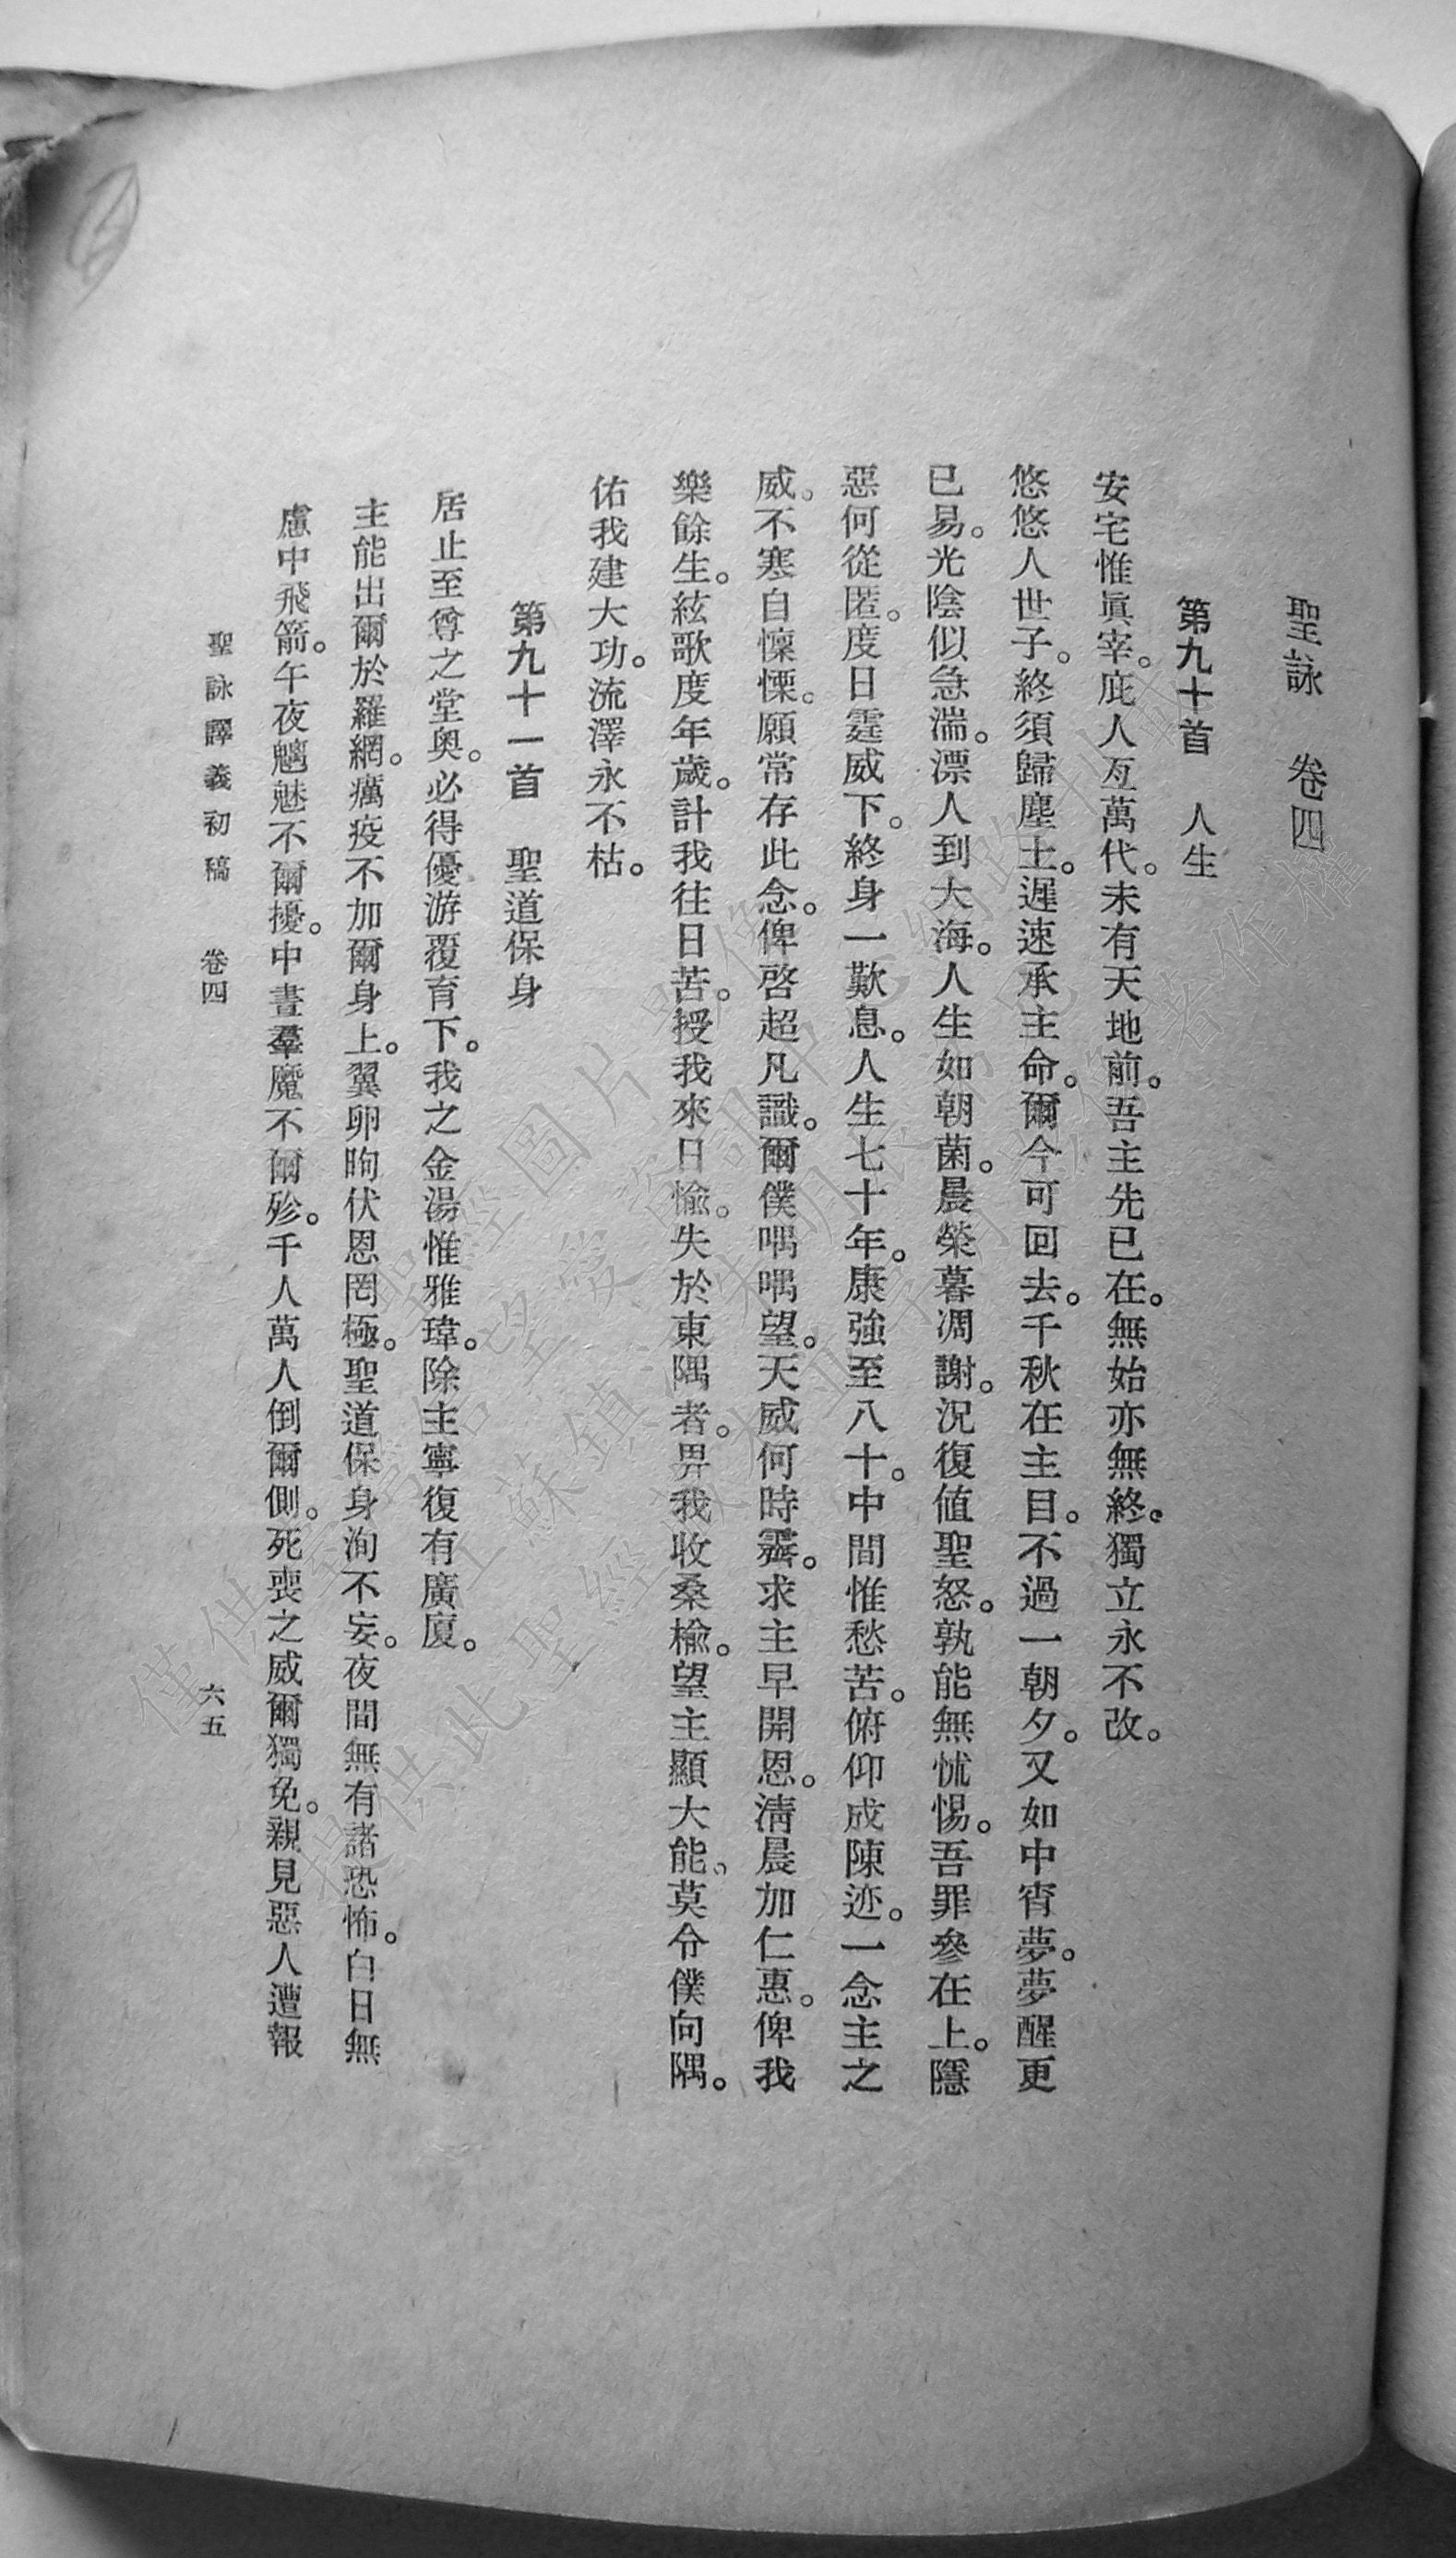 聖詠 卷四
第九十首 人生
安宅惟眞宰。庇人亙萬代。未有天地前。吾主先已在。無始亦無終。獨立永不改。
悠悠人世子。終須歸塵土。遲速承主命。爾今可回去。千秋在主目。不過一朝夕。又如中宵夢。夢醒更
已易。光陰似急湍。漂人到大海。人生如朝菌。晨榮暮凋謝。況復值聖怒。孰能無怵惕。吾罪參在上。隱
惡何從匿。度日霆威下。終身一歎息。人生七十年。康強至八十。中間惟愁苦。俯仰成陳迹。一念主之
威。不寒自懍慄。願常存此念。俾啓超凡識。爾僕喁喁望。天威何時霽。求主早開恩。淸晨加仁惠。俾我
樂餘生。絃歌度年歲。計我往日苦。授我來日愉。失於東隅者。畀我收桑楡。望主顯大能。莫令僕向隅。
佑我建大功。流澤永不枯。
第九十一首 聖道保身
居止至尊之堂奥。必得優游覆育下。我之金湯惟雅瑋。除主寧復有廣廈。
主能出爾於羅網。癘疫不加爾身上。翼卵昫伏恩罔極。聖道保身洵不妄。夜間無有諸恐怖。白日無
慮中飛箭。午夜魑魅不爾擾。中晝羣魔不爾殄。千人萬人倒爾側。死喪之威爾獨免。親見惡人遭報
聖詠譯義初稿 卷四 六五